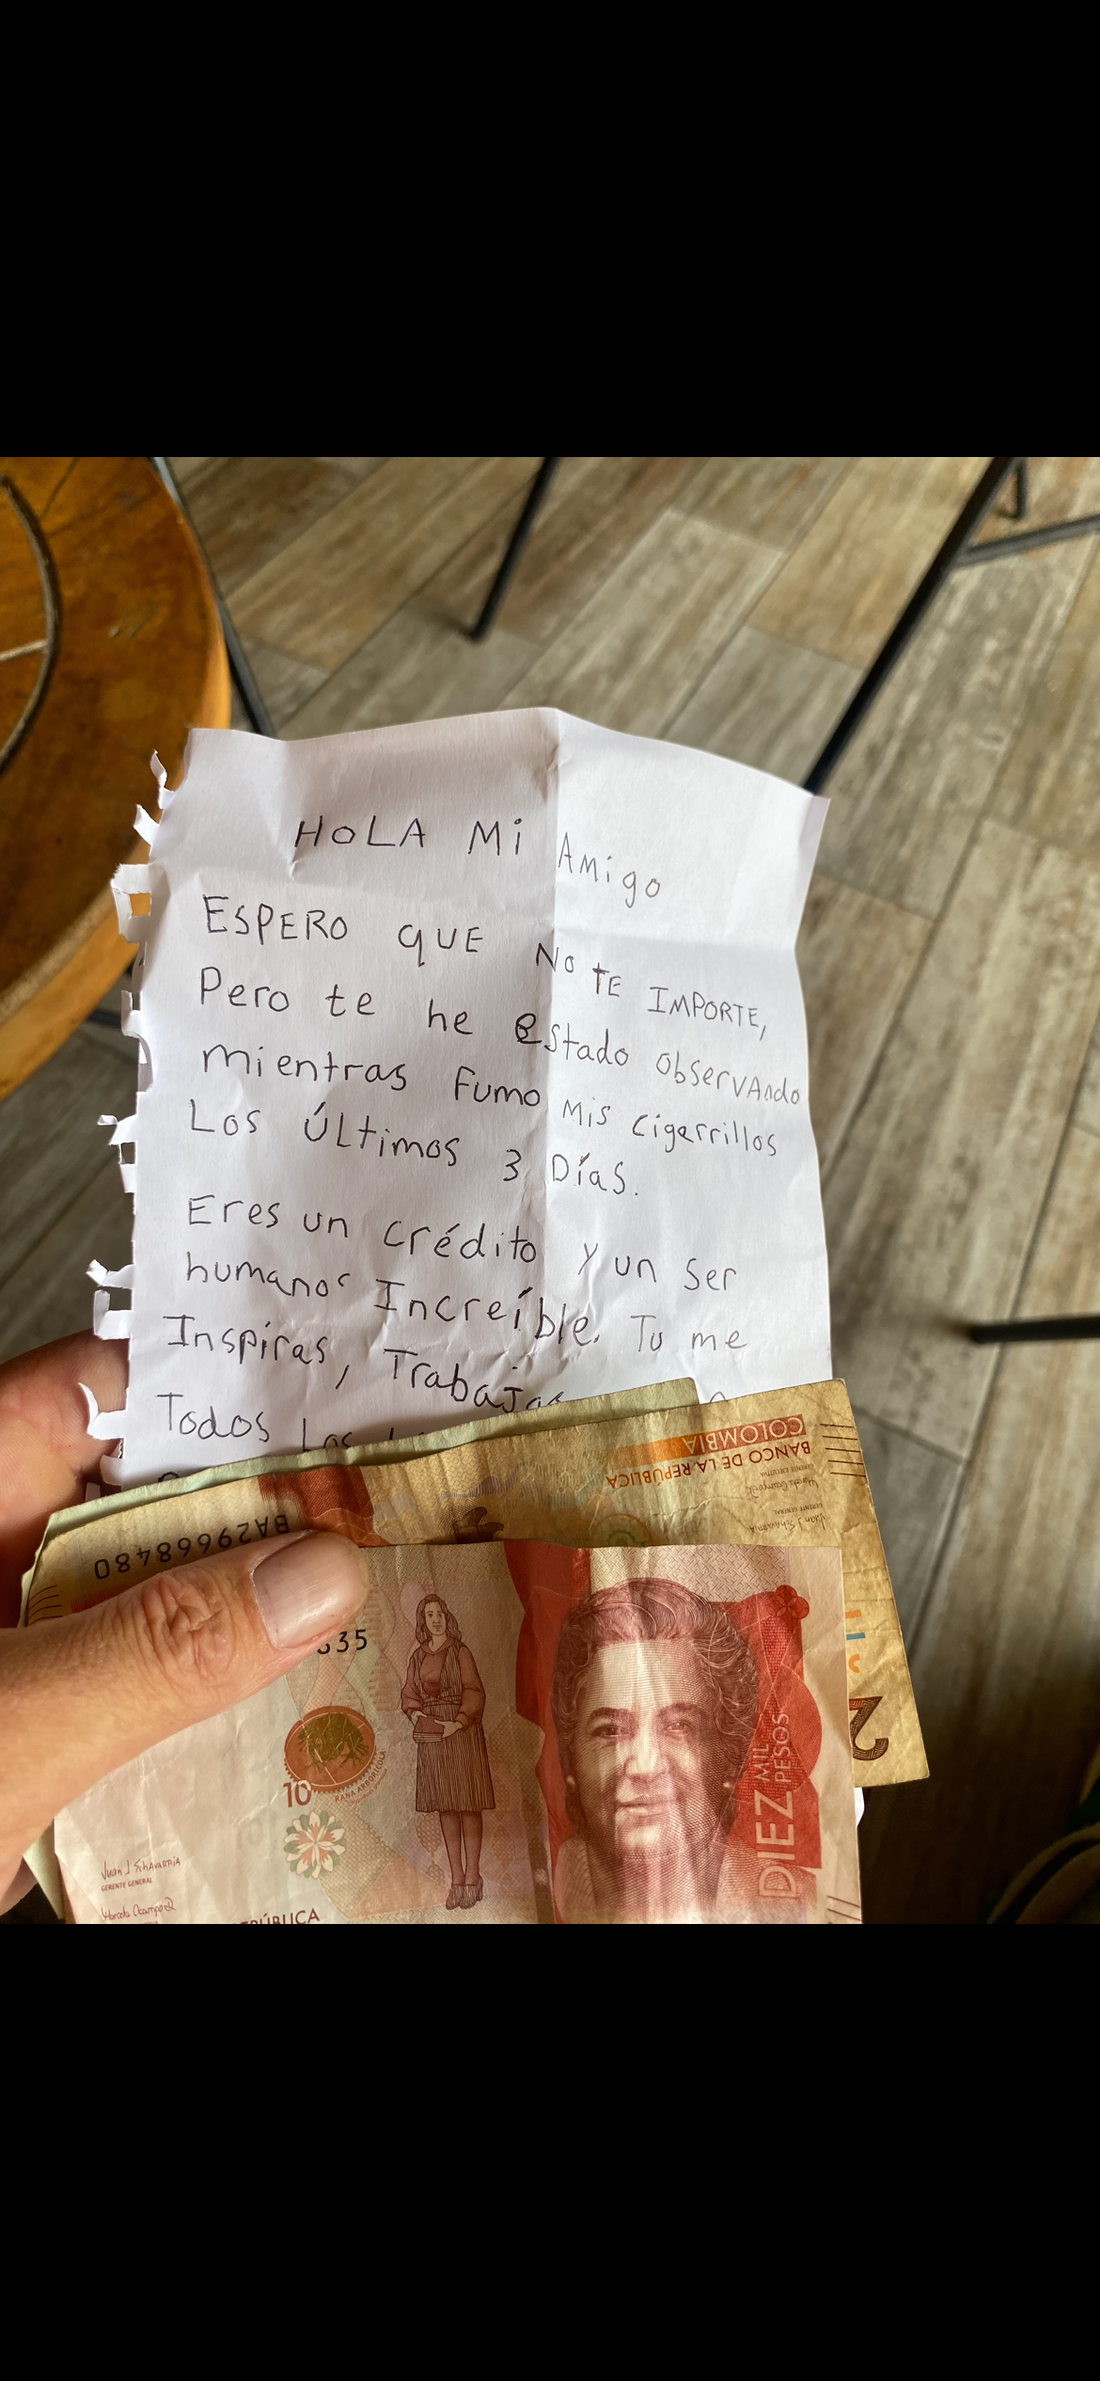 HOLA Mi Amigo
ESPERO QUE NO TE IMPORTE,
Pero te he estado observando
mientras Fumo mis cigarrillos
Los Últimos 3 Días.
Eres un crédito y un ser
humano Increíble. Tu me
Inspiras, Trabajas
Todos Los
COLOMBIA
BANCO DE LA REPÚBLICA
GERENTE EJECUTIVO
GERENTE GENERAL
BA29668480
2
35
10
RANA ARBORÍCOLA
DIEZ MIL PESOS
Juan J Echavarría
GERENTE GENERAL